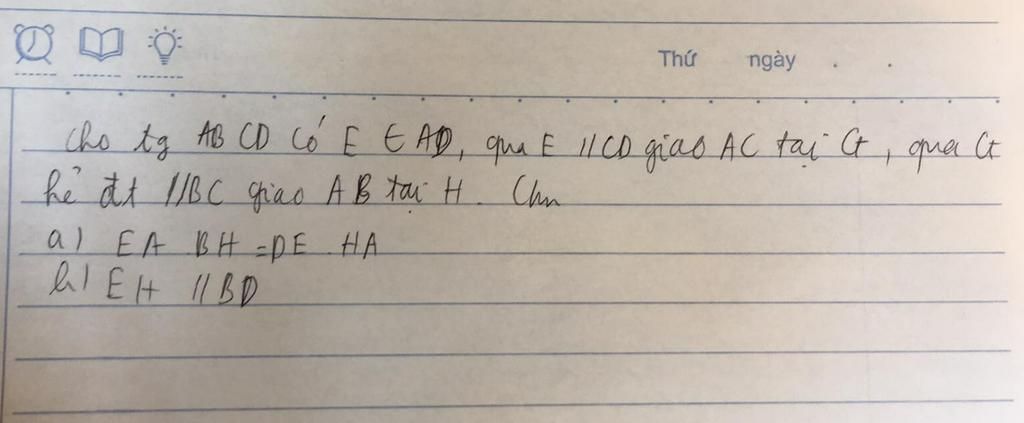 Thứ ngày . .
Cho tg ABCD có E ∈ AD, qua E //CD giao AC tại G, qua G
kẻ đt //BC giao AB tại H. Cm
a) EA BH = DE . HA
b) EH //BD